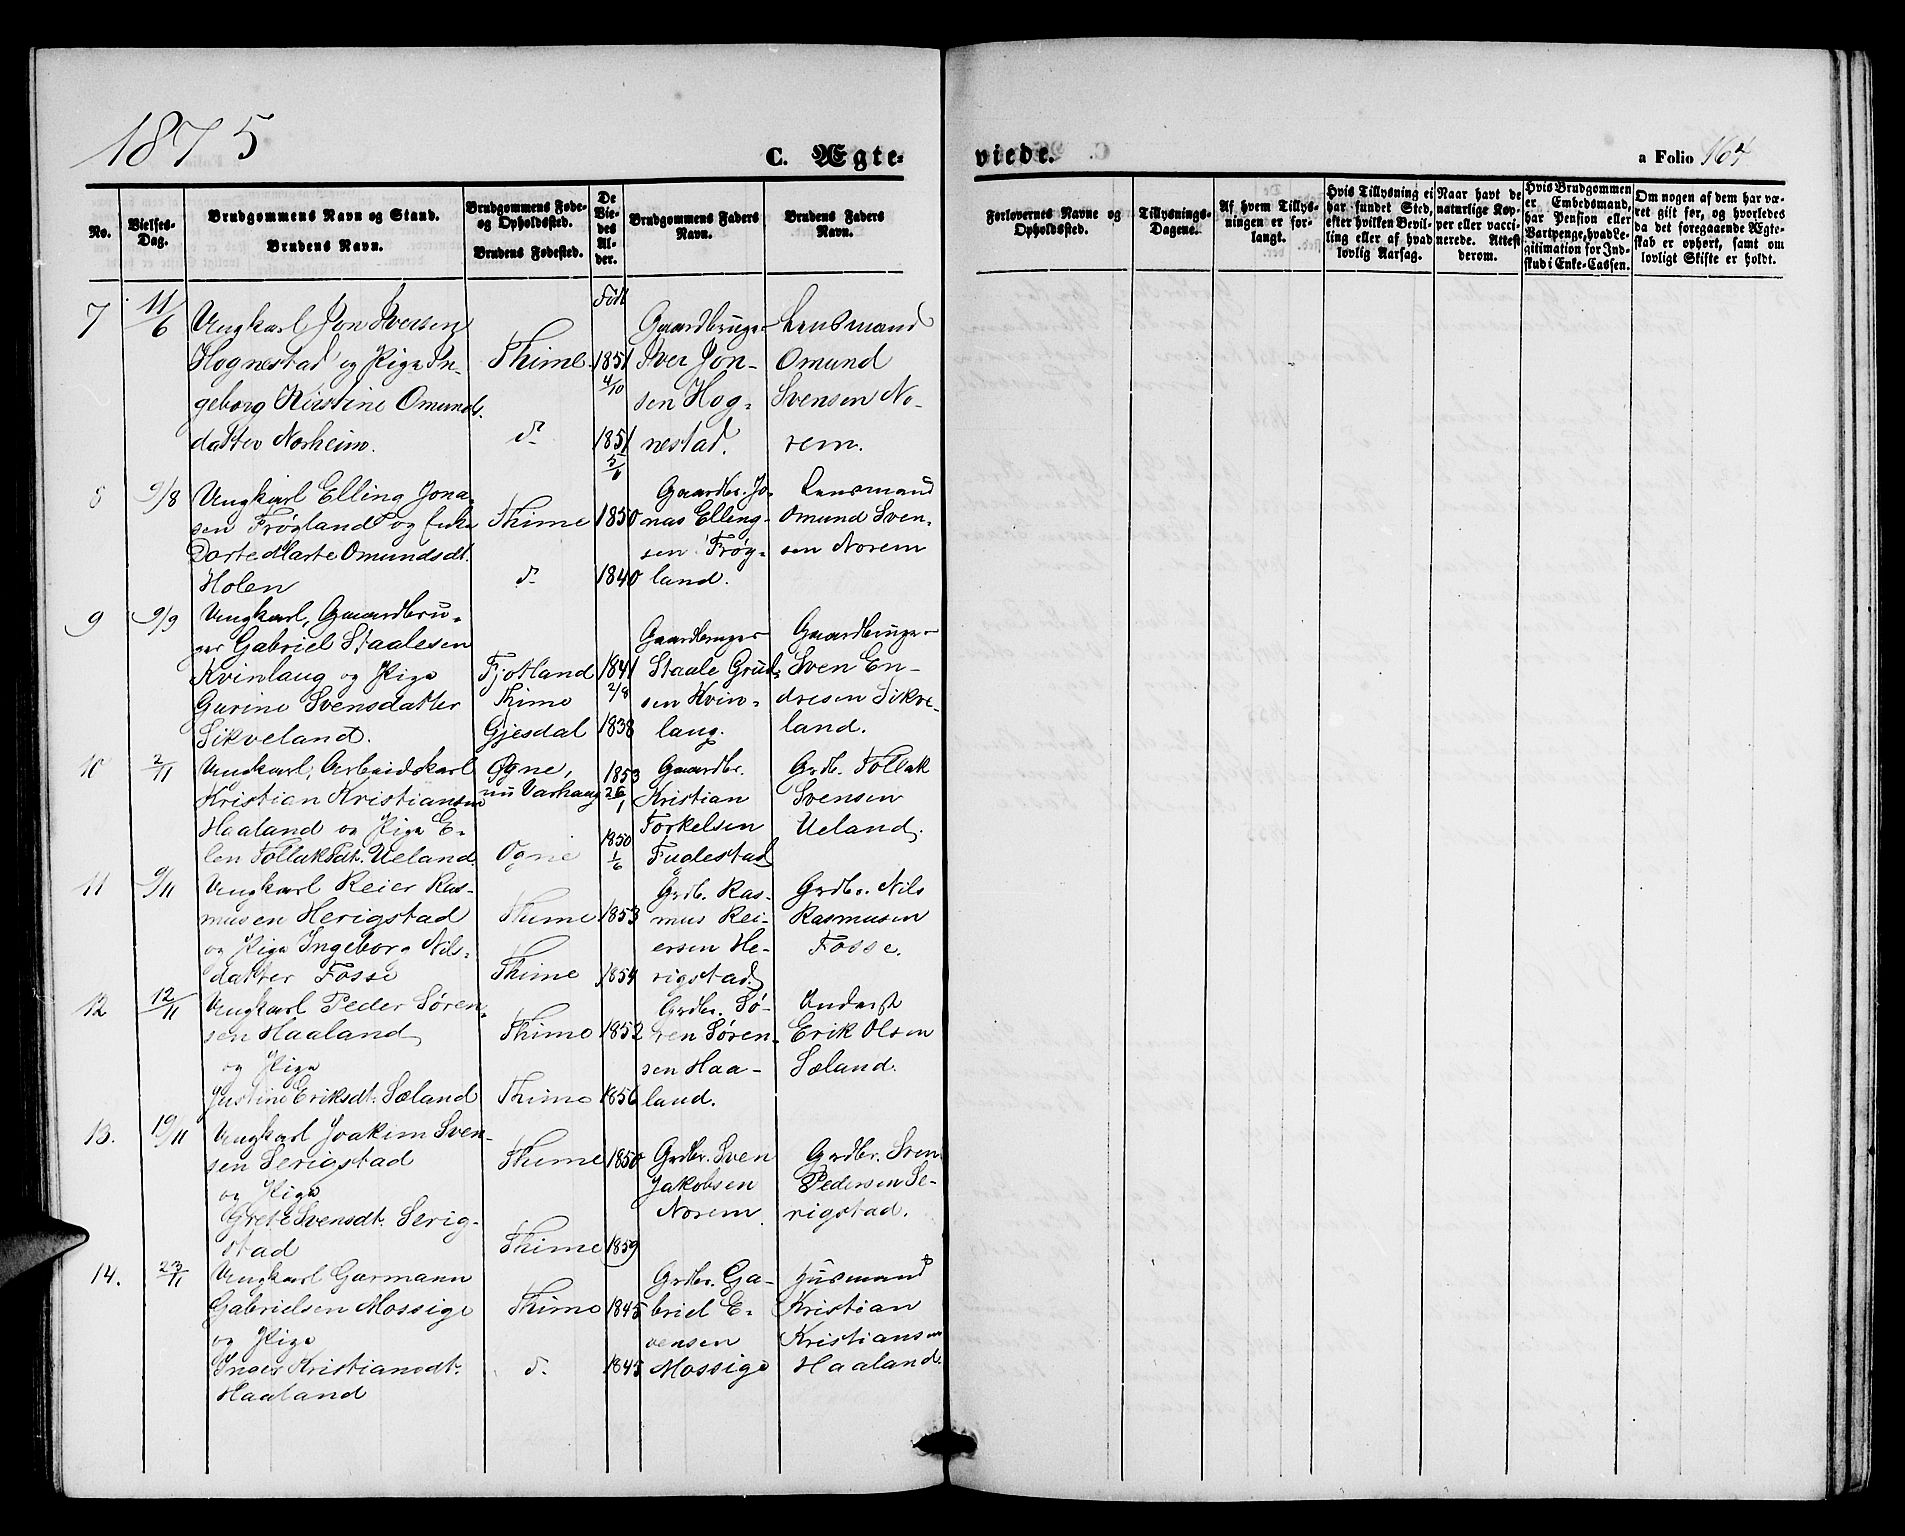 1875
C. Ægte-
viede.
a Folio 164
No.
Vielses-Dag.
Brudgommens Navn og Stand.
Brudens Navn.
Brudgommens Føde- og Opholdssted.
Brudens Fødested.
De Viedes Alder.
Brudgommens Faders Navn.
Brudens Faders Navn.
Forlovernes Navne og Opholdssted.
Tillysnings-Dagene.
Af hvem Tillysningen er forlangt.
Hvis Tillysning ei har fundet Sted, efter hvilken Bevilling eller af hvad lovlig Aarsag.
Naar havt de naturlige Kopper eller vaccinerede. Attest derom.
Hvis Brudgommen er Embedsmand, har Pension eller Vartpenge, hvad Legitimation for Indskud i Enke-Cassen.
Om nogen af dem har været gift før, og hvorledes da det foregaaende Ægteskab er ophørt, samt om lovligt Skifte er holdt.
Født
7 11/6
Ungkarl Jon Iversen
Hognestad og Pige In-
geborg Kirstine Omunds-
datter Norheim.
Thime
d.
1851 4/10
1851
Gaardbruger
Iver Jon-
sen Hog-
nestad.
Lensmand
Omund
Svensen No-
rem.
8 9/8
Ungkarl Elling Jona-
sen Frøyland og Enke
Dorte Marte Omundsdt.
Holen
Thime
d.
1850
1840
Gaardbr. Jo-
nas Elling-
sen Frøg-
land.
Lensmand
Omund Sven-
sen Norem
9 9/9
Ungkarl, Gaardbru-
ger Gabriel Staalesen
Kvinlaug og Pige
Gurine Svensdatter
Sikveland.
Fjotland
Thime
Gjesdal
1841 2/8
1838
Gaardbruger
Staale Grud-
sen Kvin-
laug.
Gaardbruger
Sven En-
dresen Sikve-
land.
10 2/11
Ungkarl, Arbeidskarl
Kristian Kristiansen
Haaland og Pige E-
len Tollaksdt. Ueland.
Ogne,
nu Varhaug
Ogne
1853 26/1
1850 1/6
Gaardbr.
Kristian
Torkelsen
Fuglestad
Grdb. Tollak
Svensen
Ueland.
11 9/11
Ungkarl Reier Ras-
musen Herigstad
og Pige Ingeborg Nils-
datter Fosse
Thime
Thime
1853
1854
Grdb. Ras-
mus Rei-
ersen He-
rigstad.
Grdbr. Nils
Rasmusen
Fosse.
12 12/11
Ungkarl Peder Søren-
sen Haaland
og Pige
Justine Eriksdt. Sæland
Thime
Thime
1852
1856
Grdbr. Sø-
ren Søren-
sen Haa-
land.
Inderst
Erik Olsen
Sæland.
13. 19/11
Ungkarl Joakim Sven-
sen Serigstad
og Pige
Grete Svensdt. Serig-
stad
Thime
Thime
1850
1859
Grdbr. Sven
Jakobsen
Norem
Grdbr. Sven
Pedersen Se-
rigstad.
14. 23/11
Ungkarl Garmann
Gabrielsen Mossige
og Pige
Inger Kristiansdt.
Haaland
Thime
d.
1845
1845
Grdbr. Ga-
briel E-
vensen
Mossige
Husmand
Kristian
Kristiansen
Haaland.